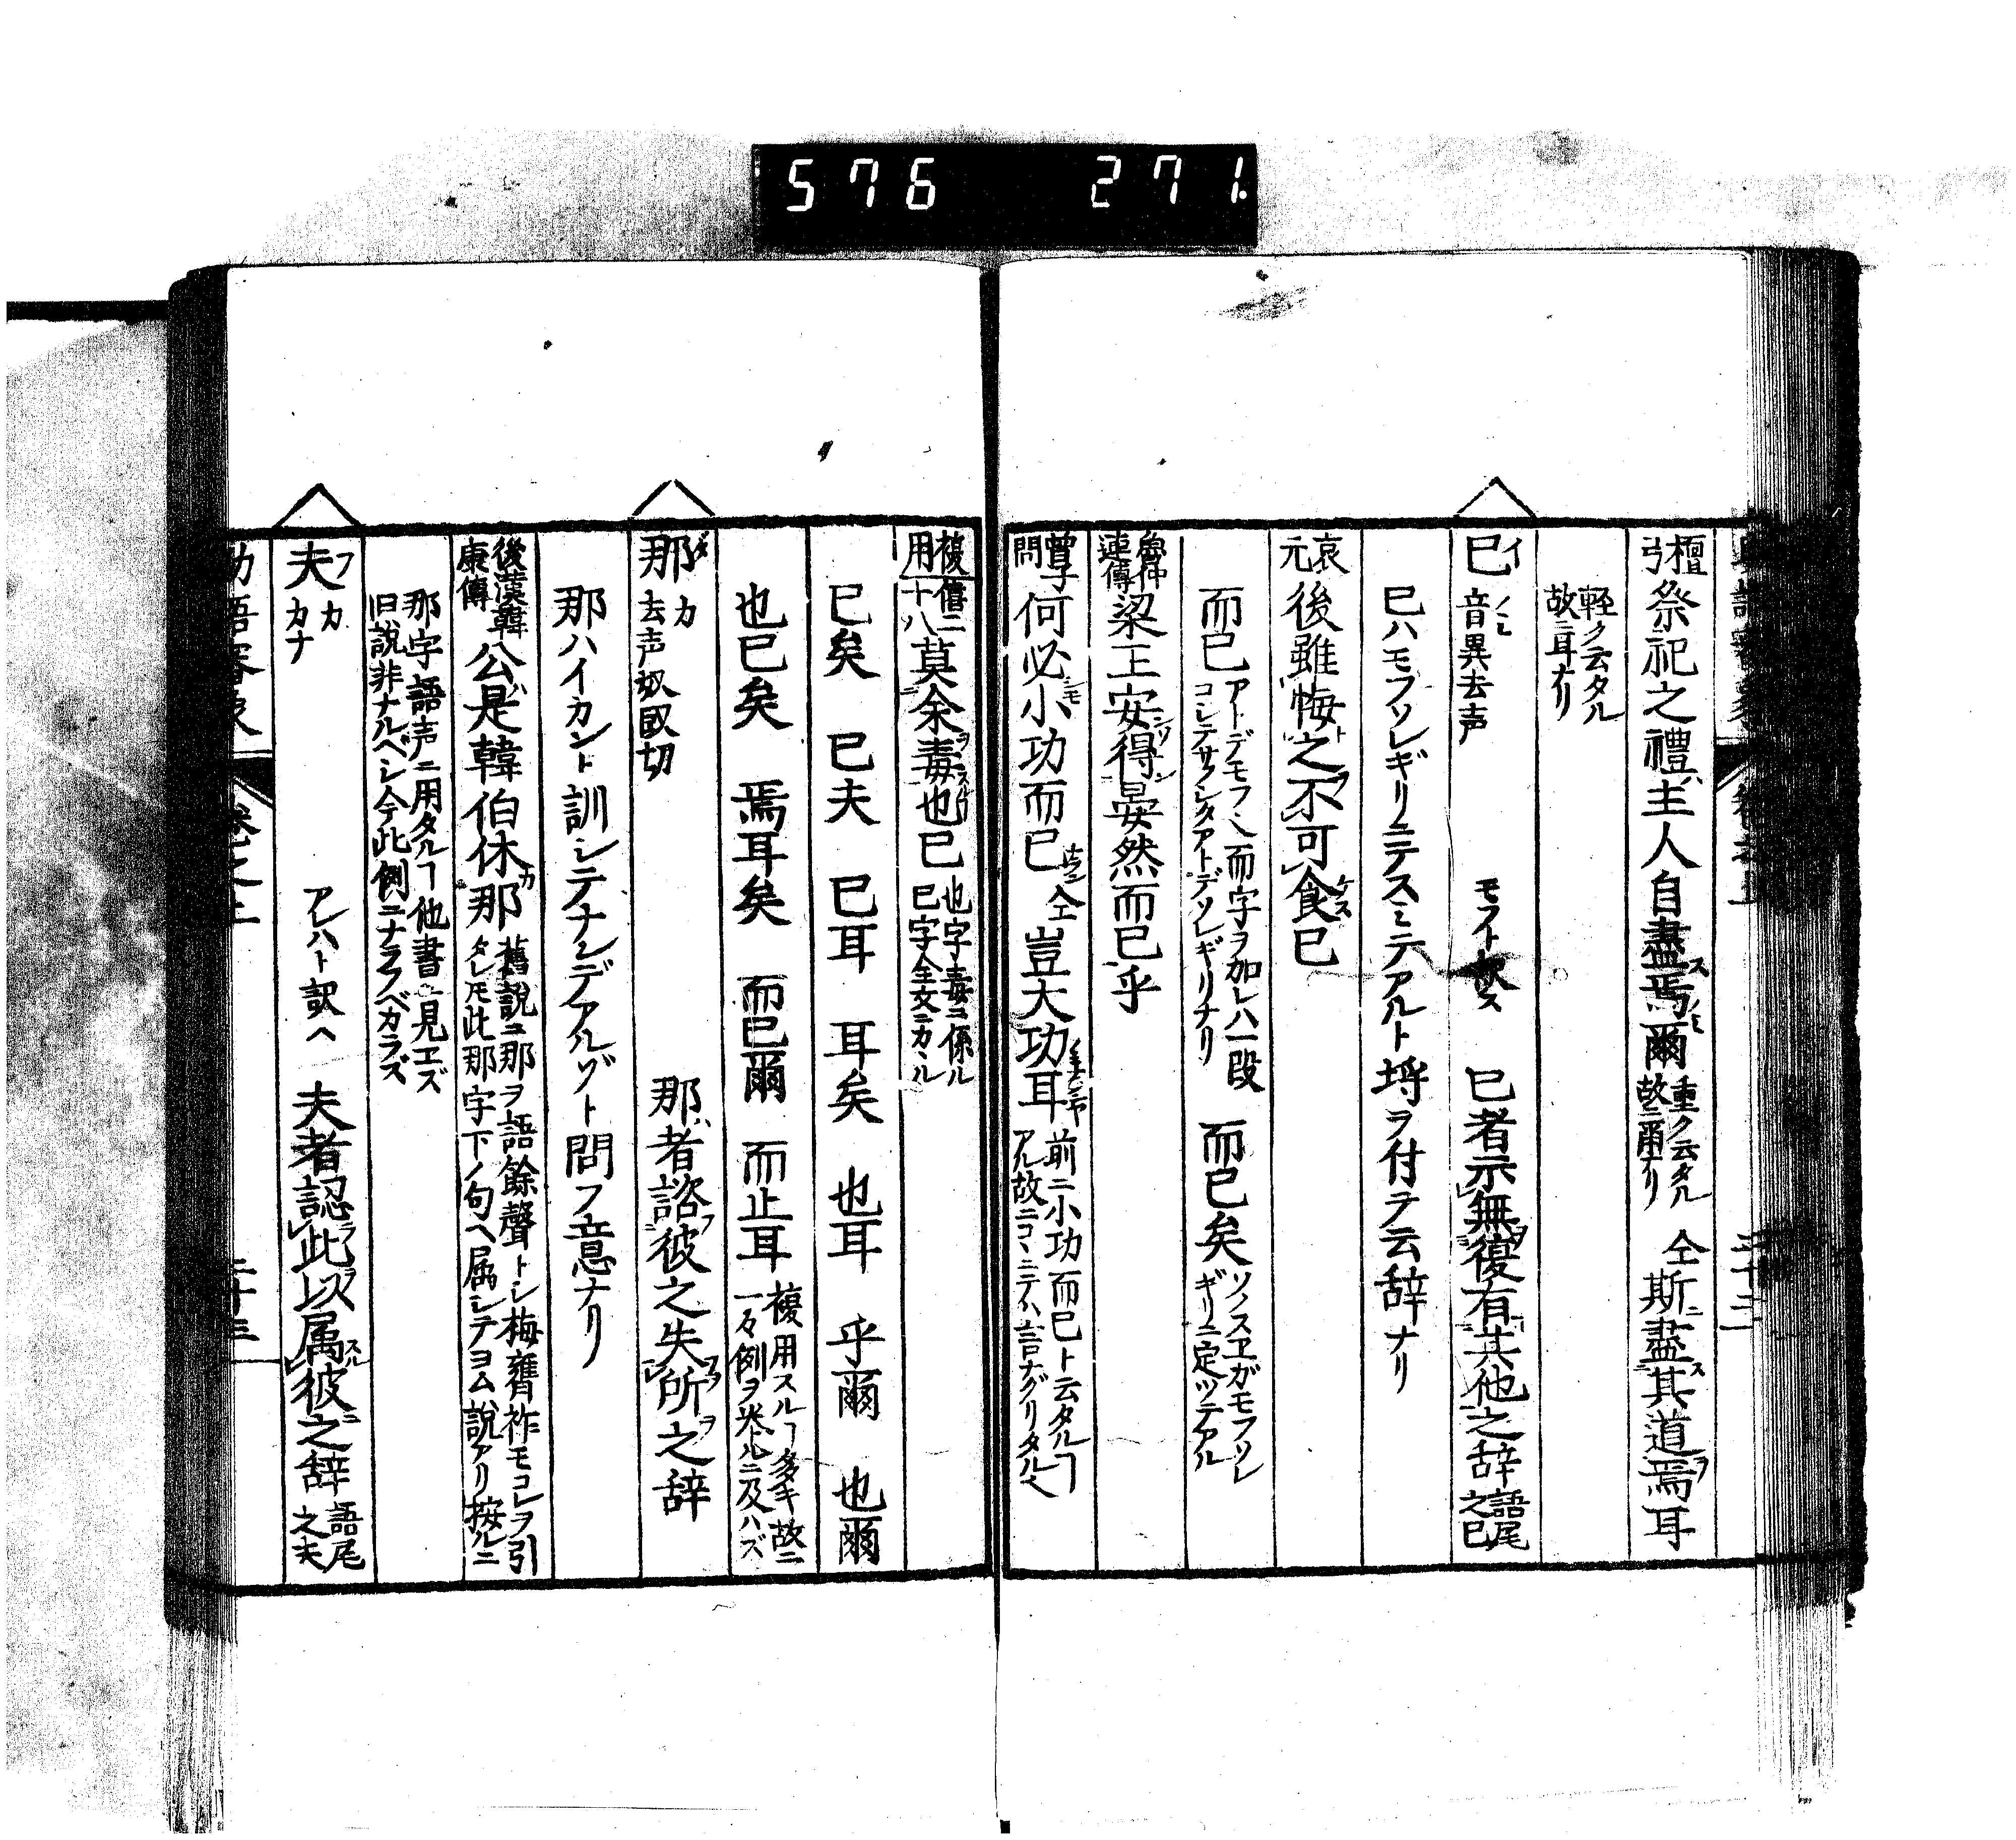 576 271
檀引 祭祀之禮主人自盡焉爾 重ク云タル故ニ爾ナリ 仝 斯盡其道焉耳
軽ク云タル故ニ耳ナリ
已 イ ノミ 音異去声 モフト訳ス 已者示無復有其他之辞 語尾之已
已ハモフソレギリニテスミテアルト埒ヲ付テ云辞ナリ
哀元 後雖悔之不可食已
而已 アトデモフ而字ヲ加レハ一段 コレデサクシタアトデソレギリナリ 而已矣 ソノスヱガモフソレギリニ定ツテアル
魯仲連傳 梁王安得晏然而已乎
曽子問 何必小功而已 仝 豈大功耳 前ニ小功而已ト云タルヿアル故ニコヽニテハ言ナグリタル也
複用 僖二十八 莫余毒也已 也字毒ニ係ル已字全文ニカヽル
已矣 已夫 已耳 耳矣 也耳 乎爾 也爾
也已矣 焉耳矣 而已爾 而止耳 複用スルヿ多キ故ニ一々例ヲ挙ルニ及ハズ
那 ダ カ 去声奴国切 那者諮彼之失所之辞
那ハイカント訓シテナレデアルゾト問フ意ナリ
後漢韓康傳 公是韓伯休那 舊說ニ那ヲ語餘聲トシ梅膺祚モコレヲ引タレモ此那字下ノ句ヘ属シテヨム說アリ按ルニ
那字語声ニ用タルヿ他書ニ見エズ旧說非ナルベシ今此例ニナラフベカラズ
夫 フ カ カナ アレハト訳ヘ 夫者認此以属彼之辞 語尾之夫